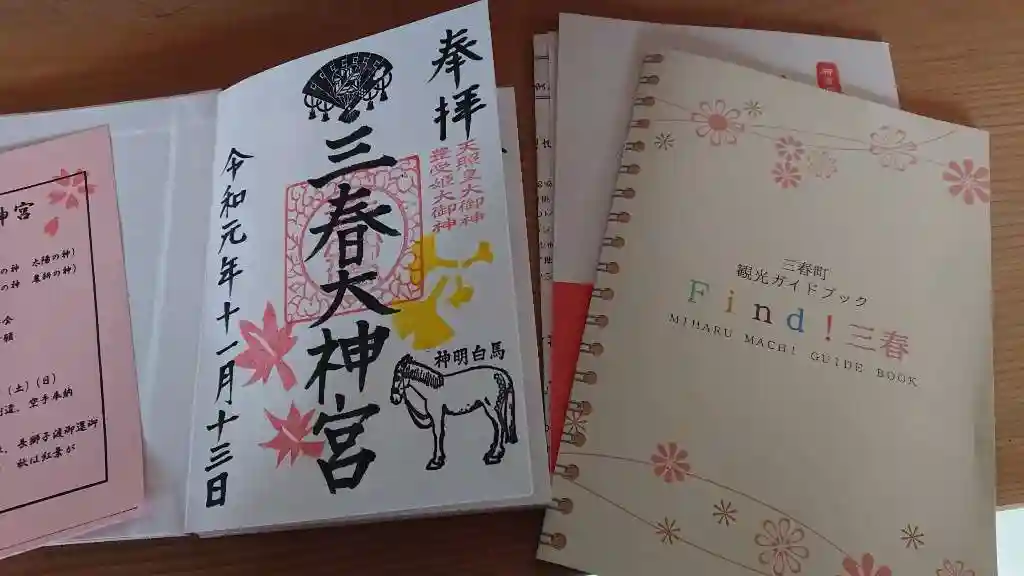 神宮
の神 太陽の神)
の神 農耕の神)
(土)(日)
空手奉納
長獅子渡御還御
秋は紅葉が
奉拝
天照皇大御神
豊受姫大御神
三春大神宮
令和元年十一月十三日
神明白馬
三春町
観光ガイドブック
Find!三春
MIHARU MACHI GUIDE BOOK